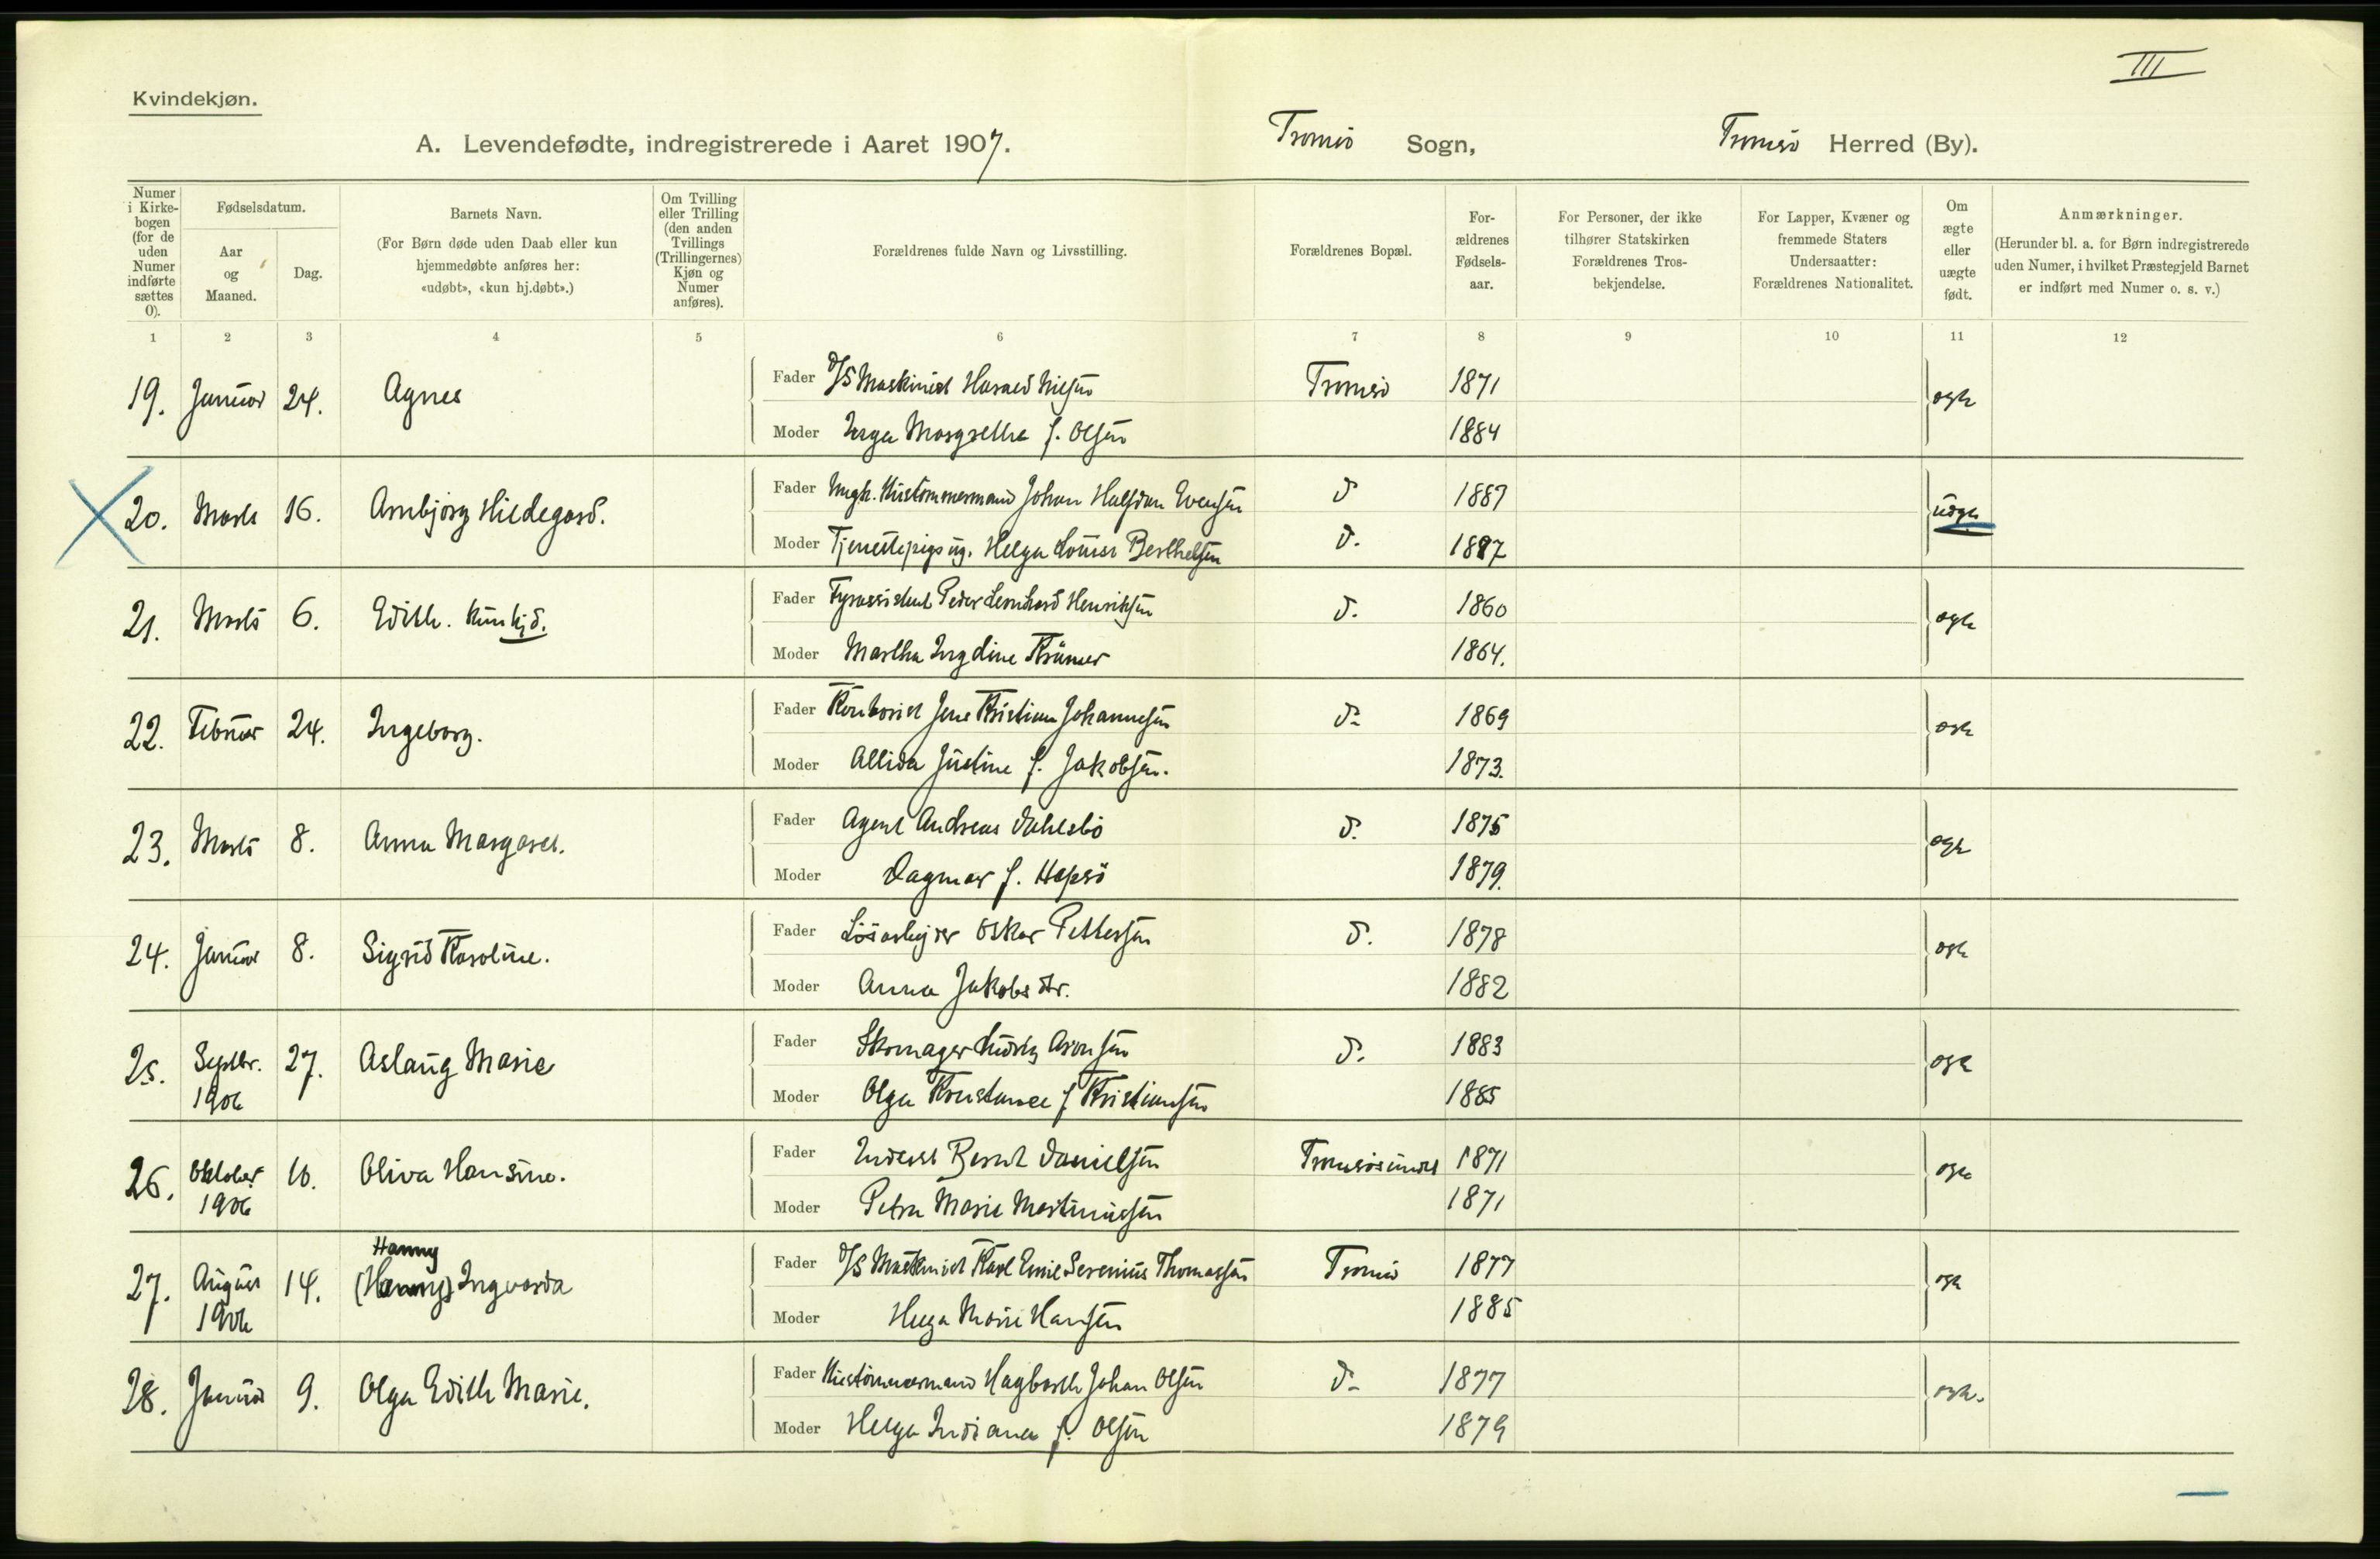 III
Kvindekjøn.
A. Levendefødte, indregistrerede i Aaret 1907. Tromsø Sogn, Tromsø Herred (By).
Numer i Kirkebogen (for de uden Numer indførte sættes 0).
Fødselsdatum.
Aar og Maaned.
Dag.
Barnets Navn.
(For Børn døde uden Daab eller kun hjemmedøbte anføres her: «udøbt», «kun hj.døbt».)
Om Tvilling eller Trilling (den anden Tvillings (Trillingernes) Kjøn og Numer anføres).
Forældrenes fulde Navn og Livsstilling.
Forældrenes Bopæl.
For-ældrenes Fødsels-aar.
For Personer, der ikke tilhører Statskirken Forældrenes Tros-bekjendelse.
For Lapper, Kvæner og fremmede Staters Undersaatter: Forældrenes Nationalitet.
Om ægte eller uægte født.
Anmærkninger.
(Herunder bl. a. for Børn indregistrerede uden Numer, i hvilket Præstegjeld Barnet er indført med Numer o. s. v.)
1 2 3 4 5 6 7 8 9 10 11 12
19. Januar 24. Agnes Fader D/S Maskinist Harald Nilsen Tromsø 1871 ægte
Moder Inga Margrethe f. Olsen 1884
20. Marts 16. Arnbjørg Hildegard. Fader Ungk. Hustømmermand Johan Halfdan Evensen d 1887 uægte
Moder Tjenestepige ug. Helga Louise Berthelsen d. 1887
21. Marts 6. Edith. kun hjd. Fader Fyrassistent Peder Leonhard Henriksen d. 1860 ægte
Moder Martha Ingdine Krämer 1864.
22. Februar 24. Ingeborg. Fader Kontorist Jens Kristian Johannesen d. 1869 ægte
Moder Allida Justine f. Jakobsen. 1873.
23. Marts 8. Anna Margaret. Fader Agent Andreas Dahlsbø d. 1875 ægte
Moder Dagmar f. Hopsø 1879.
24. Januar 8. Sigrid Karoline. Fader Løsarbejder Oskar Pettersen d. 1878 ægte
Moder Anna Jakobsdtr. 1882
25. Septbr. 27. Aslaug Marie Fader Skomager Ludvig Aronsen d. 1883 ægte
1906 Moder Olga Konstance f Kristiansen 1885
26. Oktober 10. Oliva Hansine. Fader Inderst Bernt Danielsen Tromsøsundet 1871 ægte
1906 Moder Petra Marie Martinussen 1871
Hanny
27. August 14. (Hanny) Ingvarda Fader D/S Maskinist Karl Emil Serenius Thomassen Tromsø 1877 ægte
1906 Moder Helga Marie Hansen 1885
28. Januar 9. Olga Edith Marie. Fader Hustømmermand Hagbarth Johan Olsen d. 1877 ægte.
Moder Helga Indiana f. Olsen 1879